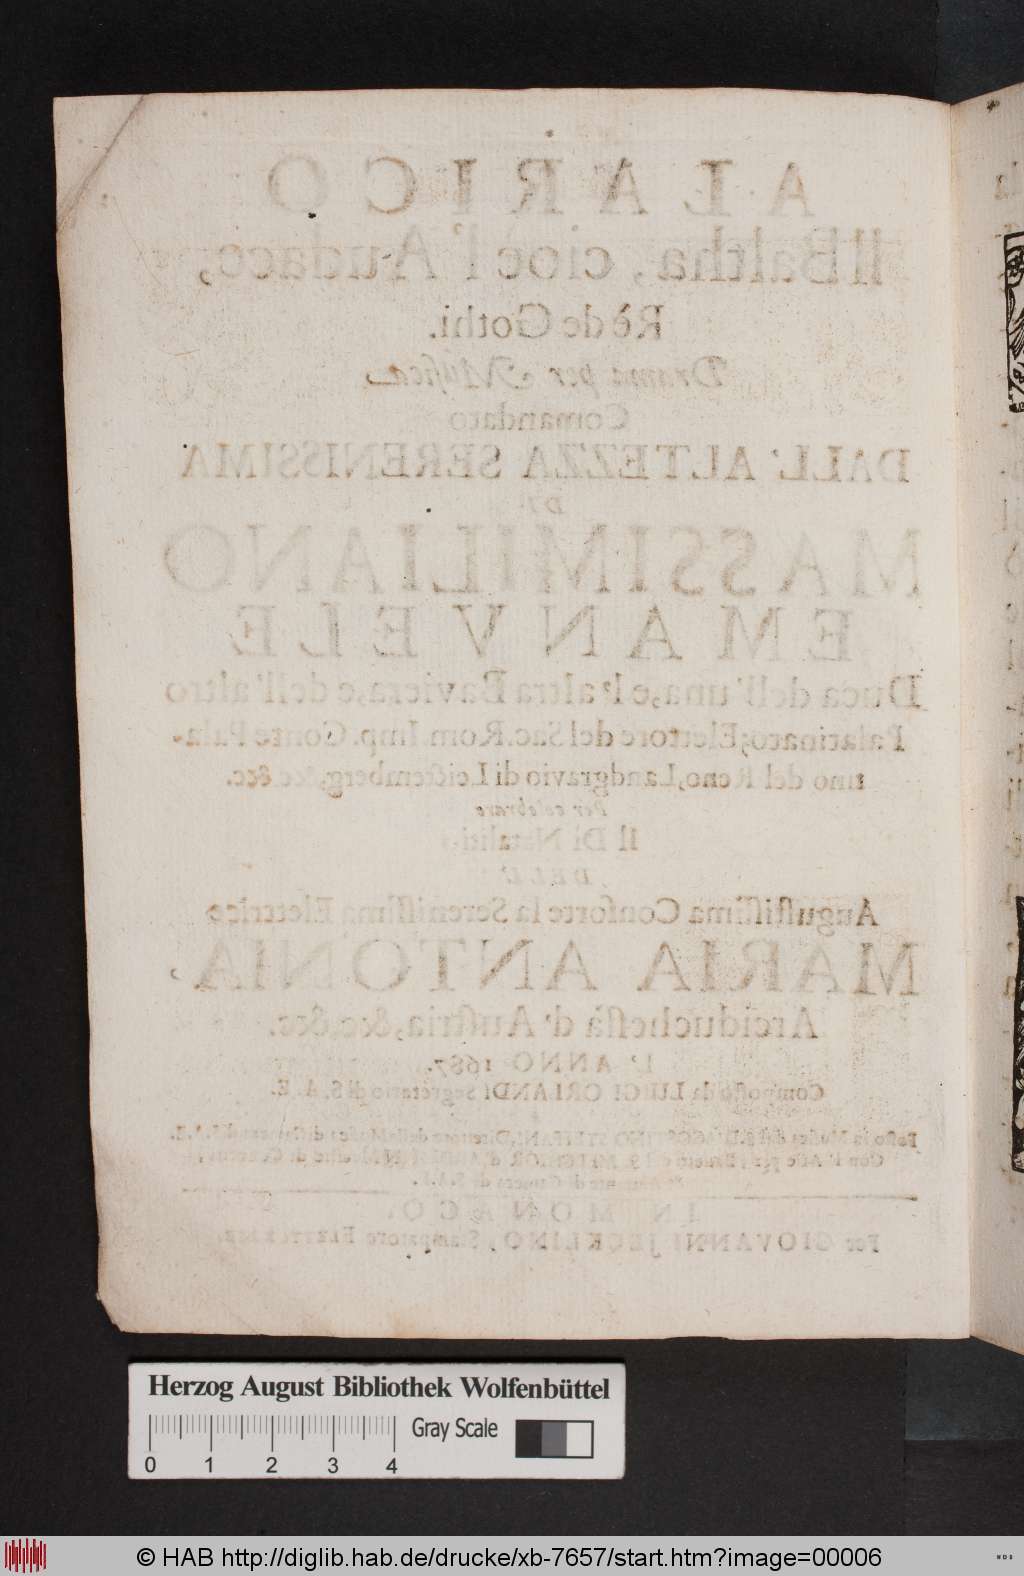 ALARICO
Il Baltha, cioe l'Audace,
Rè de Gothi.
Drama per Musica
Comandato
DALL' ALTEZZA SERENISSIMA
DI
MASSIMILIANO
EMANVELE
Duca dell' una, e l' altra Baviera, e dell' altro
Palatinato, Elettore del Sac. Rom. Imp. Conte Pala-
tino del Reno, Landgravio di Leictemberg, &c. &c.
Per celebrare
Il Dì Natalitio
DELL'
Augustissima Consorte la Serenissima Elettrice
MARIA ANTONIA,
Arciduchessa d' Austria, &c. &c.
L' ANNO 1687.
Composto da LUIGI ORLANDI Segretario di S. A. E.
Posto in Musica dal AGOSTINO STEFFANI, Direttore della Musica di
Con l' Arie per i
IN MONACO.
Per GIOVANNI JECKLINO, Stampatore ELETTORALE.
Herzog August Bibliothek Wolfenbüttel
Gray Scale
0 1 2 3 4
© HAB http://diglib.hab.de/drucke/xb-7657/start.htm?image=00006